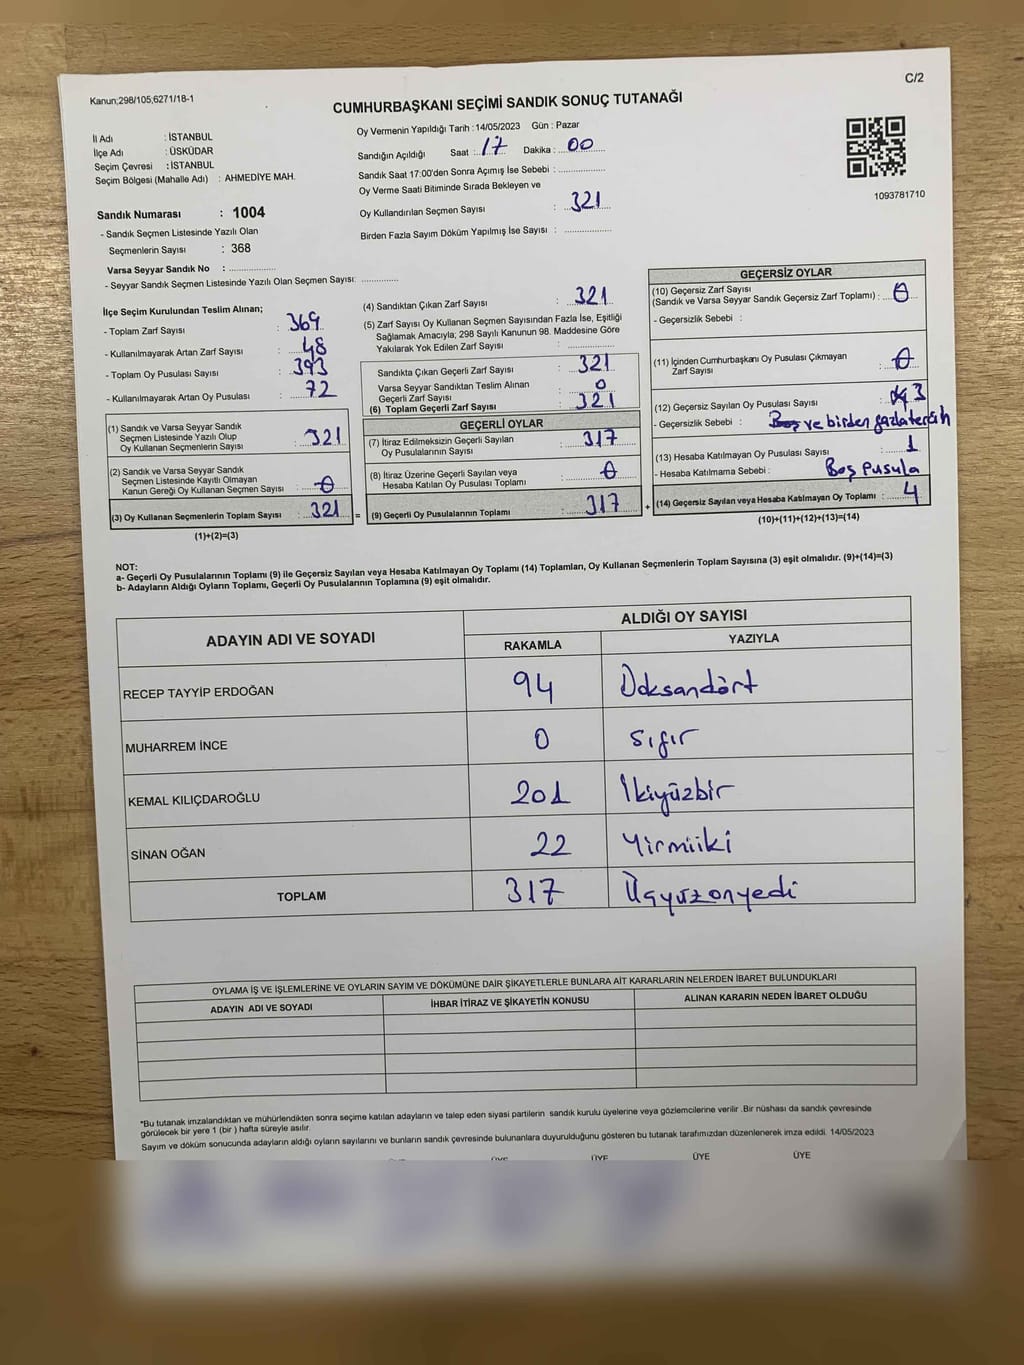 Kanun;298/105,6271/18-1
C/2
CUMHURBAŞKANI SEÇİMİ SANDIK SONUÇ TUTANAĞI
İl Adı : İSTANBUL
İlçe Adı : ÜSKÜDAR
Seçim Çevresi : İSTANBUL
Seçim Bölgesi (Mahalle Adı) : AHMEDİYE MAH.
Sandık Numarası : 1004
- Sandık Seçmen Listesinde Yazılı Olan
Seçmenlerin Sayısı : 368
Varsa Seyyar Sandık No : ..................
- Seyyar Sandık Seçmen Listesinde Yazılı Olan Seçmen Sayısı: .............
Oy Vermenin Yapıldığı Tarih : 14/05/2023 Gün : Pazar
Sandığın Açıldığı Saat : 17 Dakika : 00
Sandık Saat 17:00'den Sonra Açımış İse Sebebi : ................
Oy Verme Saati Bitiminde Sırada Bekleyen ve
Oy Kullandırılan Seçmen Sayısı : 321
Birden Fazla Sayım Döküm Yapılmış İse Sayısı : ................
1093781710
İlçe Seçim Kurulundan Teslim Alınan;
- Toplam Zarf Sayısı : 369
- Kullanılmayarak Artan Zarf Sayısı : 48
- Toplam Oy Pusulası Sayısı : 393
- Kullanılmayarak Artan Oy Pusulası : 72
(1) Sandık ve Varsa Seyyar Sandık
Seçmen Listesinde Yazılı Olup
Oy Kullanan Seçmenlerin Sayısı : 321
(2) Sandık ve Varsa Seyyar Sandık
Seçmen Listesinde Kayıtlı Olmayan
Kanun Gereği Oy Kullanan Seçmen Sayısı : 0
(3) Oy Kullanan Seçmenlerin Toplam Sayısı : 321 =
(1)+(2)=(3)
(4) Sandıktan Çıkan Zarf Sayısı : 321
(5) Zarf Sayısı Oy Kullanan Seçmen Sayısından Fazla İse, Eşitliği
Sağlamak Amacıyla; 298 Sayılı Kanunun 98. Maddesine Göre
Yakılarak Yok Edilen Zarf Sayısı : ................
Sandıkta Çıkan Geçerli Zarf Sayısı : 321
Varsa Seyyar Sandıktan Teslim Alınan
Geçerli Zarf Sayısı : 0
(6) Toplam Geçerli Zarf Sayısı : 321
GEÇERLİ OYLAR
(7) İtiraz Edilmeksizin Geçerli Sayılan
Oy Pusulalarının Sayısı : 317
(8) İtiraz Üzerine Geçerli Sayılan veya
Hesaba Katılan Oy Pusulası Toplamı : 0
(9) Geçerli Oy Pusulalarının Toplamı : 317 +
GEÇERSİZ OYLAR
(10) Geçersiz Zarf Sayısı
(Sandık ve Varsa Seyyar Sandık Geçersiz Zarf Toplamı) : 0
- Geçersizlik Sebebi :
(11) İçinden Cumhurbaşkanı Oy Pusulası Çıkmayan
Zarf Sayısı : 0
(12) Geçersiz Sayılan Oy Pusulası Sayısı : 3
- Geçersizlik Sebebi : Boş ve birden fazla tercih
(13) Hesaba Katılmayan Oy Pusulası Sayısı : 1
- Hesaba Katılmama Sebebi : Boş pusula
(14) Geçersiz Sayılan veya Hesaba Katılmayan Oy Toplamı : 4
(10)+(11)+(12)+(13)=(14)
NOT:
a- Geçerli Oy Pusulalarının Toplamı (9) ile Geçersiz Sayılan veya Hesaba Katılmayan Oy Toplamı (14) Toplamları, Oy Kullanan Seçmenlerin Toplam Sayısına (3) eşit olmalıdır. (9)+(14)=(3)
b- Adayların Aldığı Oyların Toplamı, Geçerli Oy Pusulalarının Toplamına (9) eşit olmalıdır.
ADAYIN ADI VE SOYADI ALDIĞI OY SAYISI
RAKAMLA YAZIYLA
RECEP TAYYİP ERDOĞAN 94 Doksandört
MUHARREM İNCE 0 Sıfır
KEMAL KILIÇDAROĞLU 201 İkiyüzbir
SİNAN OĞAN 22 Yirmiiki
TOPLAM 317 Üçyüzonyedi
OYLAMA İŞ VE İŞLEMLERİNE VE OYLARIN SAYIM VE DÖKÜMÜNE DAİR ŞİKAYETLERLE BUNLARA AİT KARARLARIN NELERDEN İBARET BULUNDUKLARI
ADAYIN ADI VE SOYADI İHBAR İTİRAZ VE ŞİKAYETİN KONUSU ALINAN KARARIN NEDEN İBARET OLDUĞU
*Bu tutanak imzalandıktan ve mühürlendikten sonra seçime katılan adayların ve talep eden siyasi partilerin sandık kurulu üyelerine veya gözlemcilerine verilir .Bir nüshası da sandık çevresinde
görülecek bir yere 1 (bir ) hafta süreyle asılır.
Sayım ve döküm sonucunda adayların aldığı oyların sayılarını ve bunların sandık çevresinde bulunanlara duyurulduğunu gösteren bu tutanak tarafımızdan düzenlenerek imza edildi. 14/05/2023
ÜYE ÜYE ÜYE ÜYE